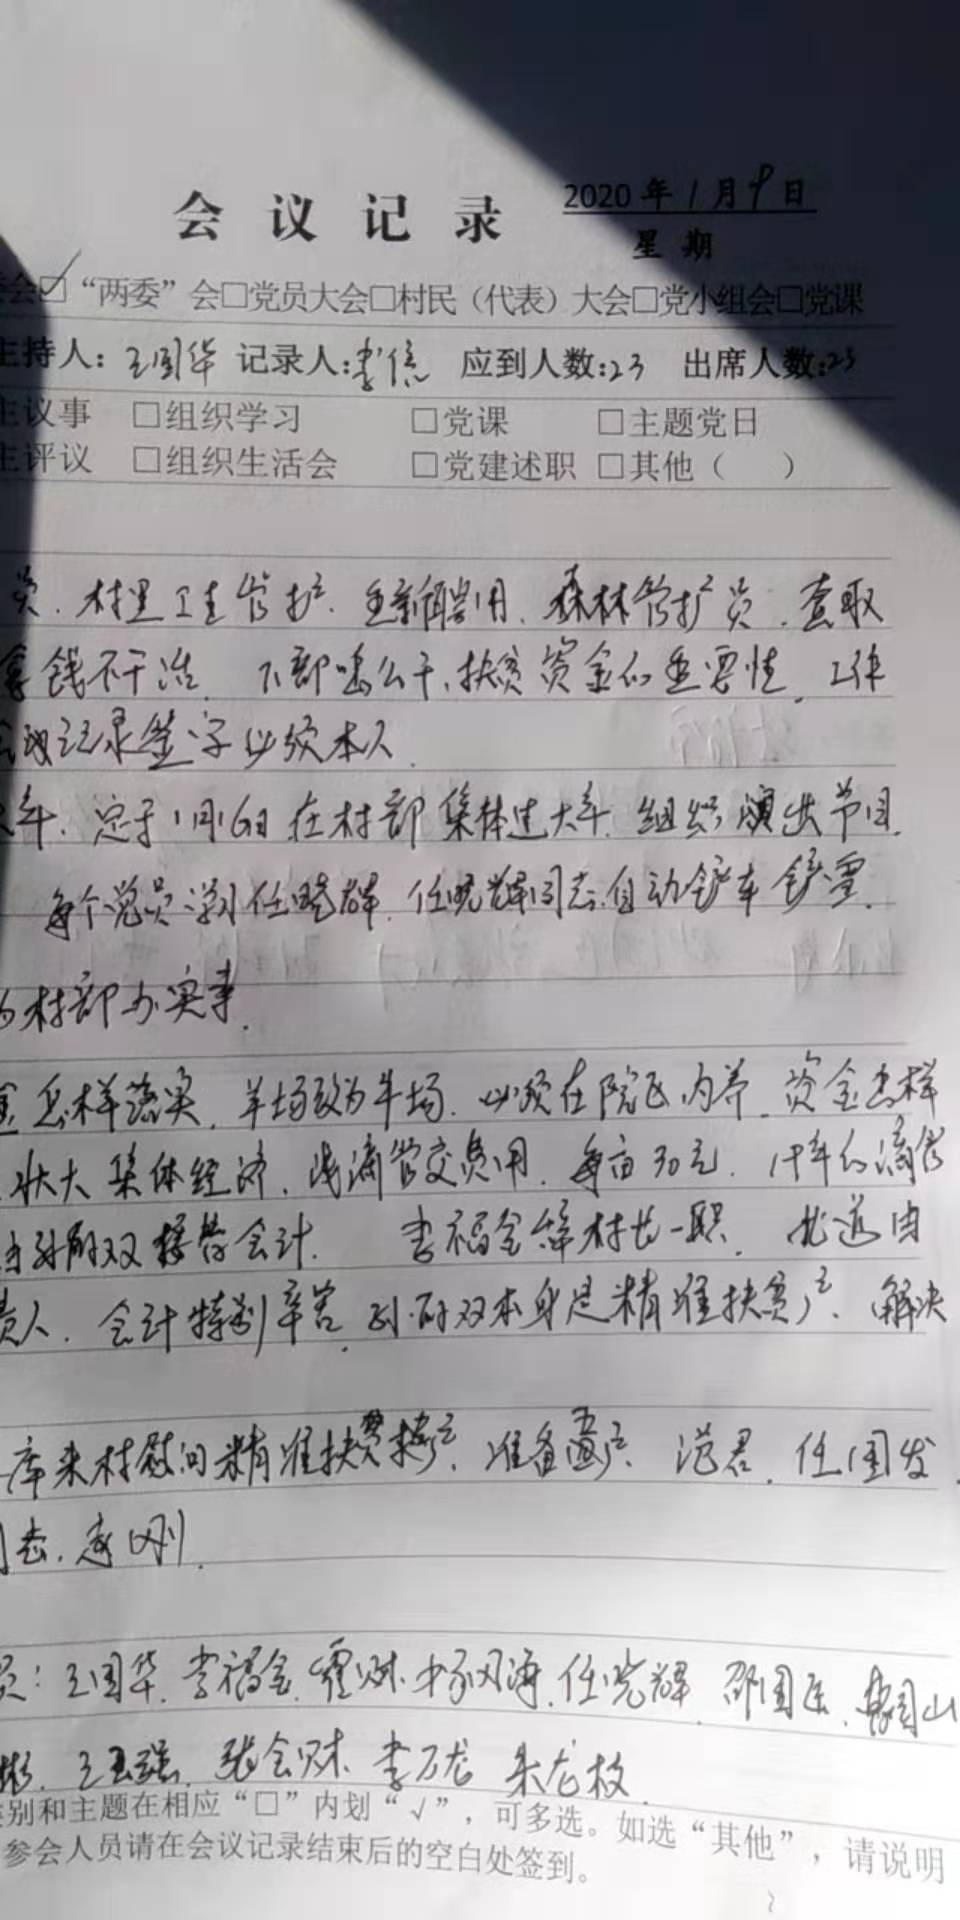 会议记录
2020年1月9日
星期
会□“两委”会□党员大会□村民（代表）大会□党小组会□党课
主持人：王国华 记录人：李信 应到人数：23 出席人数：23
主议事 □组织学习 □党课 □主题党日
主评议 □组织生活会 □党建述职 □其他（ ）
员．村里卫生管护．重新聘用．森林管护员．查取
拿钱不干活．扶贫资金的重要性．工作
会议记录签字必须本人．
定于1月16日在村部集体过大年．组织演出节目．
每个党员学习任晓辉．任晓辉同志自动铲车铲雪．
为村部办实事．
怎样落实．羊场改为牛场．必须在院区内养．资金怎样
壮大集体经济．滴管交费用．每亩30元．的滴管
接替会计．李福金辞村长一职．
责人．会计特别辛苦．双本身是精准扶贫户．解决
库来村慰问精准扶贫户．准备五户．范君．任国发．
志．李刚．
员：王国华．李福金．任晓辉．邵国臣．
王玉强．张会财．李万龙．朱龙枝．
类别和主题在相应“□”内划“√”，可多选。如选“其他”，请说明
参会人员请在会议记录结束后的空白处签到。